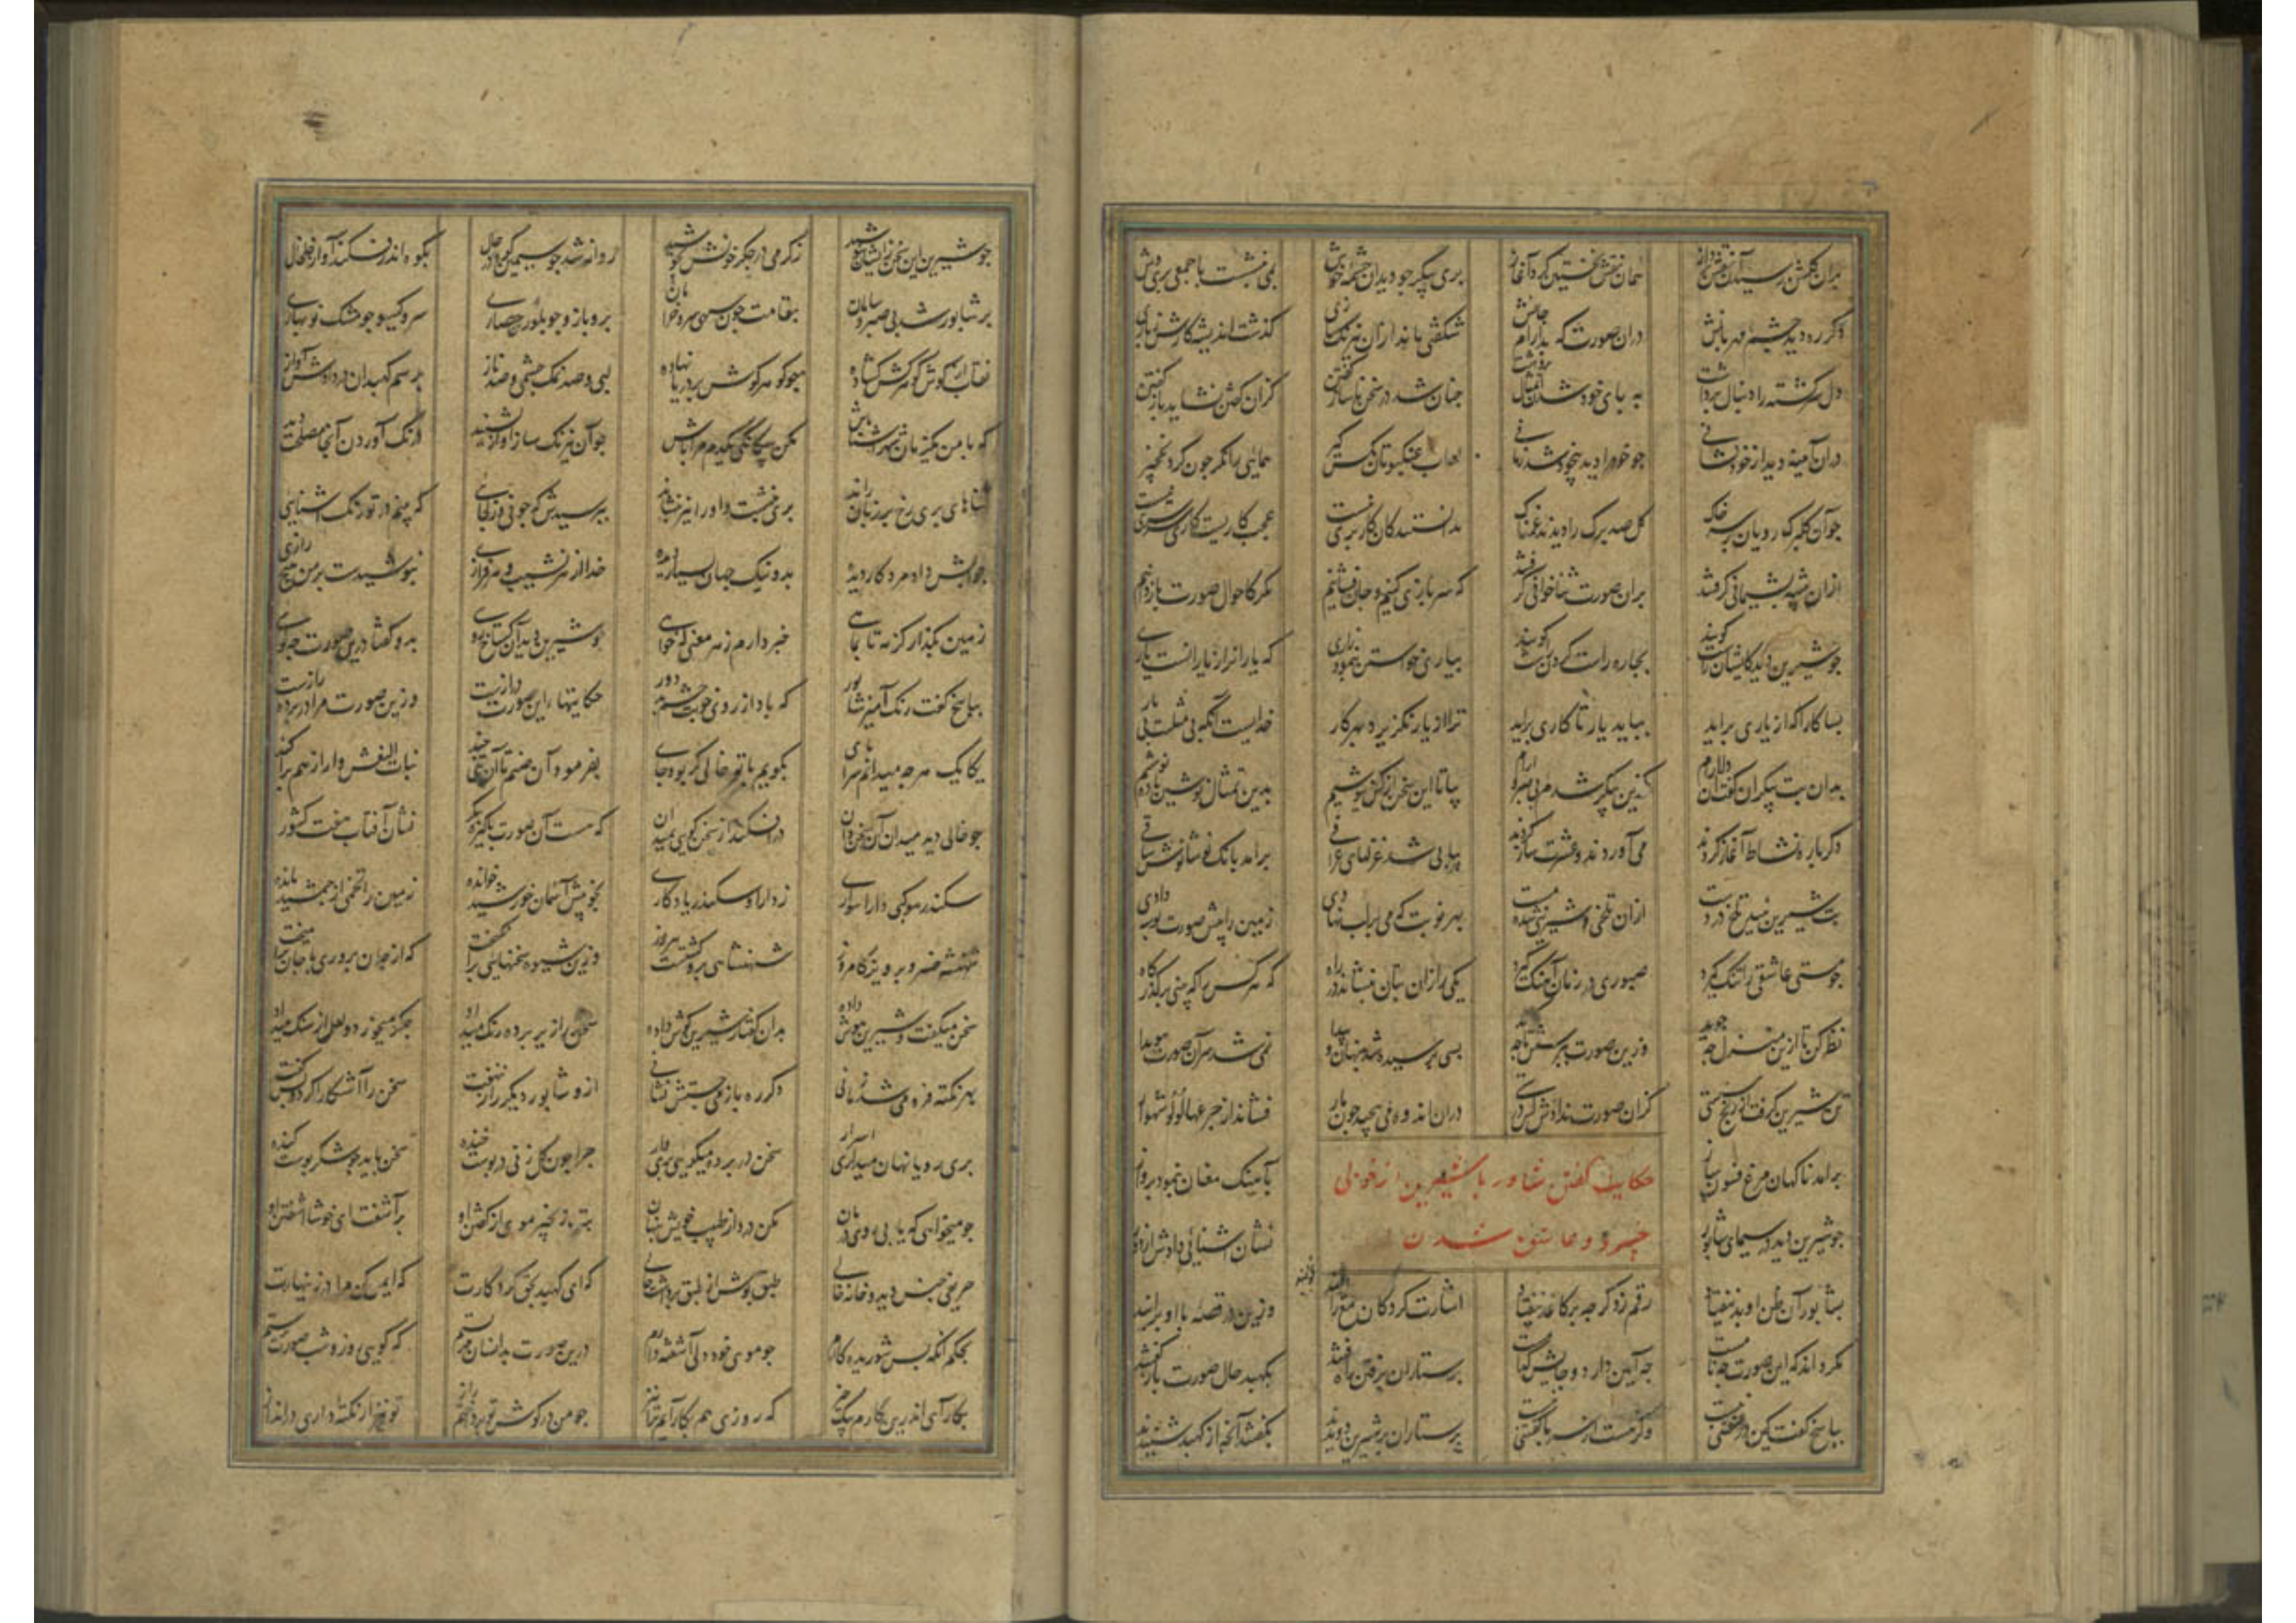 بران گلشن رسید آن نقش پرداز همان نقش نخستین کرد آغاز پری پیکر چو دید آن چشمه خویش نمی نشست با جمعی پری کیش
دگر ره دید چشم مهربانش دران صورت که بد آرام جانش شگفتی ماند ازان نیرنگ سازی گذشت اندیشه کارش ز بازی
دل سرگشته را دنبال برداشت به پای خود شد آن تمثال برداشت چنان شد در سخن ناساز گفتن کزان گفتن نشاید باز گفتن
دران آیینه دید از خود نشانی چو خود را دید بیخود شد زمانی لعاب عنکبوتان مگس گیر همایی را نگر چون کرد نخچیر
چو آن گلبرگ رویان بر سر خاک گل صد برگ را دیدند غمناک بدانستند کان کار پری نیست عجب کاریست کاری سرسری نیست
ازان پیشه پشیمانی گرفتند بران صورت ثناخوانی گرفتند که سربازی کنیم و جان فشانیم مگر کاحوال صورت باز دانیم
چو شیرین دید کایشان راست گویند بچاره راست کردن راست گویند بیاری خواستن بنمود زاری که یارانرا ز یارانست یاری
بسا کارا که از یاری براید بباید یار تا کاری براید ترا از یار نگزیرد بهر کار خدایست آنکه بی مثلست و بی یار
بدان بت پیکران گفت آن دلارام کزین پیکر شدم بی صبر و آرام بیا تا این سخن از کس نپوشیم بدین تمثال نوشین باده نوشیم
دگرباره نشاط آغاز کردند می آوردند و عشرت ساز کردند پیاپی شد غزلهای عراقی برامد بانگ نوشانوش ساقی
بت شیرین نبید تلخ در دست ازان تلخی و شیرینی شده مست بهر نوبت که می بر لب نهادی زمین را پیش صورت بوسه دادی
چو مستی عاشقی را تنگ گیرد صبوری در زمان آهنگ گیرد یکی را زان بتان بنشاند در راه که هر کس را که بینی بر گذرگاه
نظر کن تا ازین منزل چه جوید وزین صورت بپرسش تا چه بسی پرسیده شد پنهان و پیدا نمی شد سر آن صورت هویدا
تن شیرین گرفت از رنج سستی کزان صورت ندادش کس درستی دران اندوه می پیچید چون مار فشاند از جزعها لولو شهوار
برامد ناگهان مرغ فسون ساز بآهنگ مغان بنمود پرواز
حکایت گفتن شاور با شیرین از خوبی
چو شیرین دید در سیمای شاپور نشان آشنایی دادش از دور
خسرو و عاشق شدن
بشاپور آن ظن او بد نیفتاد رقم زد گر چه بر کاغذ نیفتاد اشارت کرد کان مغ را بخوانید وزین در قصه با او برانید
مگر داند که این صورت چه نامست چه آیین دارد و جایش کدامست پرستاران برفتن راه رفتند بکهبد حال صورت باز گفتند
بپاسخ گفت کین در سفتنی نیست وگر هست از سر پا گفتنی نیست پرستاران بر شیرین دویدند بگفتند آنچه از کهبد شنیدند
چو شیرین این سخن زایشان نیوشید ز گرمی در جگر خونش بجوشید روانه شد چو سیمین کوه در حال بکوه اندر فکند آواز خلخال
بر شاپور شد بی صبر و سامان بقامت چون سهی سرو خرامان بر و بازو چو بلور حصاری سر و گیسو چو مشک نوبهاری
نقاب از گوش گوهرکش گشاده چو گوهر گوش بر دریا نهاده لبی و صد نمک چشمی و صد ناز برسم کهبدان در دادش آواز
که با من یک زمان هم آشنا باش مکن بیگانگی یکدم مرا باش چو آن نیرنگ ساز آواز بشنید درنگ آوردن آنجا مصلحت دید
ثناهای پری رخ بر زبان راند پری بنشست و او را نیز بنشاند بپرسیدش که چونی و ز کجایی که بینم در تو رنگ آشنایی
جوابش داد مرد کار دیده بد و نیک جهان بسیار دیده خدا از هر نشیب و هر فرازی نپوشیدست بر من هیچ رازی
زمین بگذار کز مه تا بماهی خبر دارم ز هر معنی که خواهی چو شیرین دید آن گستاخ رویی بدو گفتا درین صورت چه گویی
بپاسخ گفت رنگ آمیز شاپور که باد از روی خوبت چشم بد دور حکایتهای این صورت درازست وزین صورت مرا در پرده رازست
یکایک هر چه میدانم سراپای بگویم با تو گر خالی بود جای بفرمود آن صنم تا آن بتی چند بنات النعش وار از هم پراکند
چو خالی دید میدان آن سخندان درافکند از سخن گویی بمیدان که هست آن صورت پاکیزه پیکر نشان آفتاب هفت کشور
سکندر موکبی دارا سواری ز دارا و سکندر یادگاری بخوبیش آسمان خورشید خوانده زمین را تخمی از جمشید مانده
شهنشه خسرو پرویز کامروز شهنشاهی برو گشتست پیروز وزین شیوه سخنهایی برانگیخت که از جان پروری با جان برآمیخت
سخن میگفت و شیرین هوش داده بدان گفتار شیرین گوش داده سخن را زیر پرده رنگ میداد جگر میخورد و لعل از سنگ میداد
بهر نکته فرو می شد زمانی دگر ره باز می جستش نشانی ازو شاپور دیگر راز ننهفت سخن را آشکارا کرد و پس گفت
پری رویا نهان میداری اسرار سخن در پرده میگویی پری وار چرا چون گل زنی در پوست خنده سخن باید چو شکر پوست کنده
چو میخواهی که یابی روی درمان مکن درد از طبیب خویش پنهان بت زنجیر موی از گفتن او برآشفت ای خوشا آشفتن او
حریفی جنس دید و خانه خالی طبق پوش از طبق برداشت حالی که ای کهبد بحق کردگارت که ایمن کن مرا در زینهارت
بحکم آنکه بس شوریده کارم چو موی خود دلی آشفته دارم درین صورت بدانسان مهر بستم که گویی روز و شب صورت پرستم
بکار آی اندرین کارم بیک چیز که روزی هم بکار آیم ترا نیز چو من در گوش تو پرداختم راز تو نیز ار نکته داری درانداز